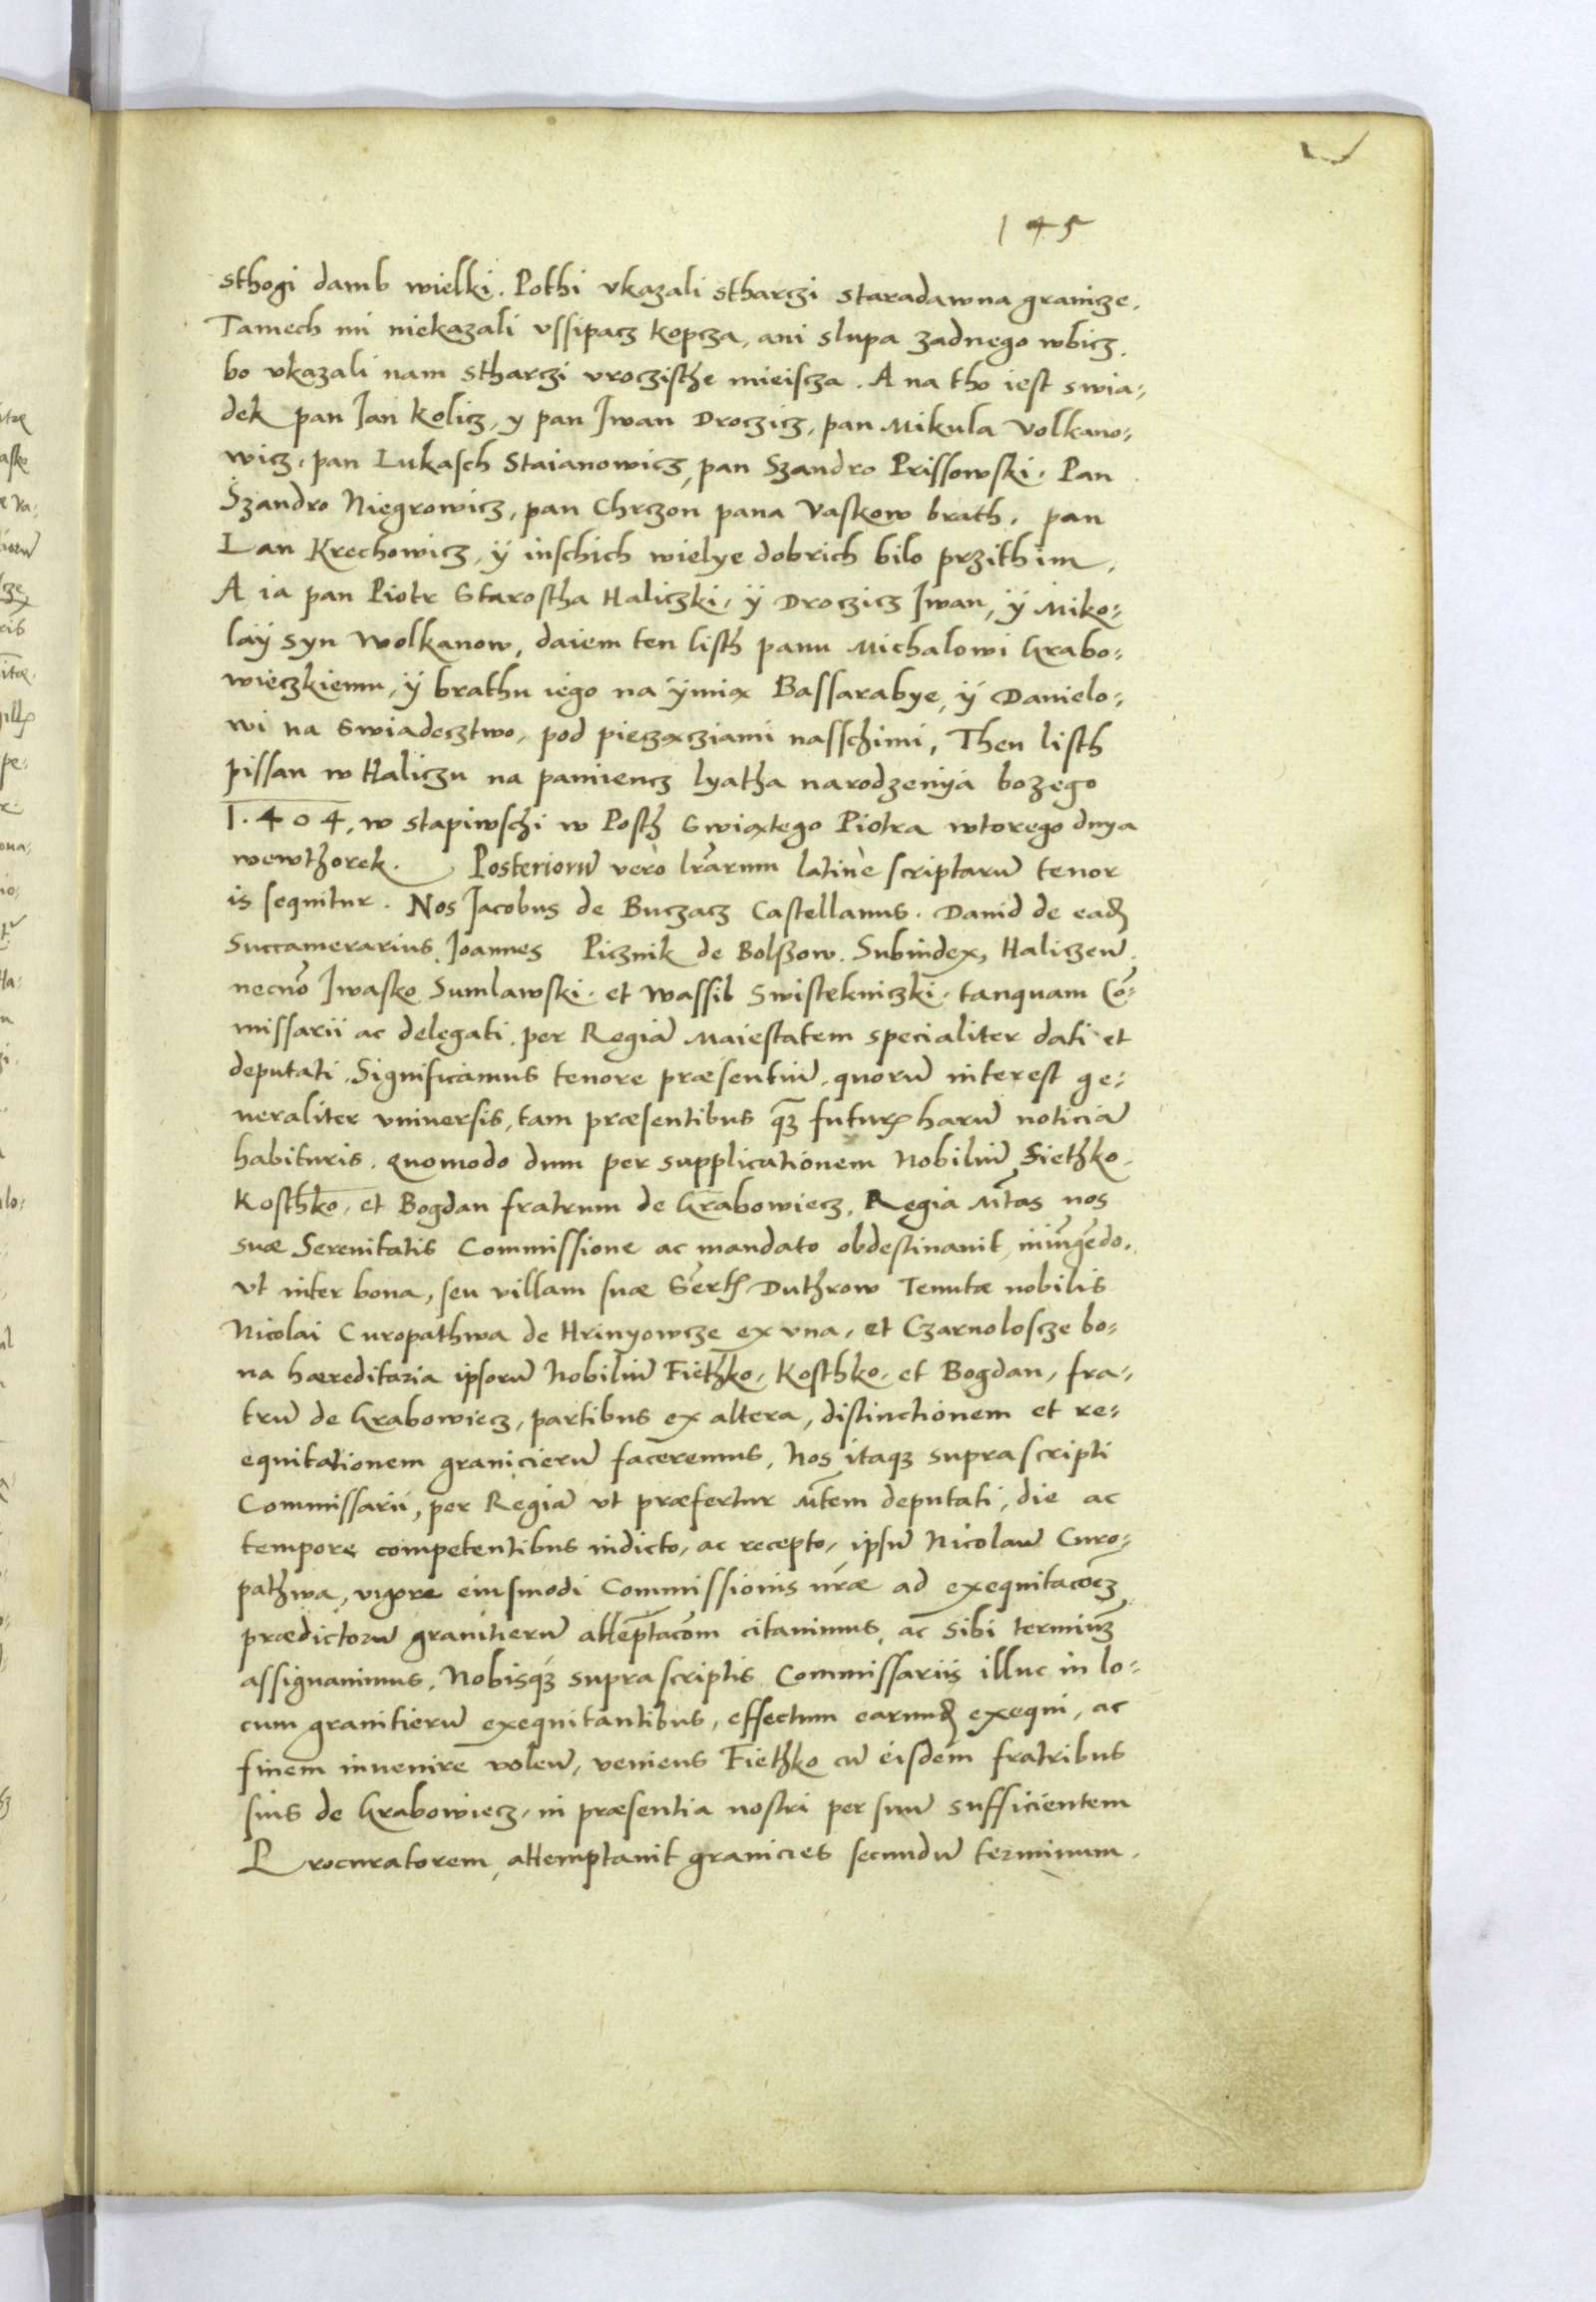 145
sthogi damb wielki. Pothi vkazali stharczi staradawna granicze.
Tamech mi niekazali vssipacz kopcza, ani slupa zadnego wbicz.
bo vkazali nam stharczi vroczisthe mieiscza. A na tho iest swia-
dek pan Jan Kolicz, y pan Jwan Droczicz, pan Mikula Volkano-
wicz, pan Lukasch Staianowicz, pan Szandro Prissowski. Pan
Szandro Niegrowicz, pan Chrczon pana Vaskow brath, pan
Lan Krechowicz, ÿ inschich wielye dobrich bilo przithim.
A ia pan Piotr Starostha Haliczki, ÿ Droczicz Jwan, ÿ Miko-
laÿ syn Wolkanow, daiem ten listh panu Michalowi Hrabo-
wieczkiemu, ÿ brathu iego na ÿmiæ Bassarabye, ÿ Danielo-
wi na Swiadecztwo, pod pieczæcziami nasschimi, Then listh
pissan w Haliczu na pamiencz lyatha narodzenÿa bozego
1.404, w stapiwschi w Posth Swiætego Piotra wtorego dnya
wewthorek. Posteriorū vero lr̄arum latine scriptarū tenor
is sequitur. Nos Jacobus de Buczacz Castellanus. Dauid de eadꝫ
Succamerarius, Joannes Picznik de Bolszow. Subiudex, Haliczeñ.
necnõ Jwasko Sumlawski. et Wassil Swistelniczki. tanquam Cõ-
missarii ac delegati per Regiā Maiestatem specialiter dati et
deputati. Significamus tenore præsentiū, quorū interest ge-
neraliter vniuersis, tam præsentibus qꝫ̄ futurꝭ harū noticiā
habituris. Quomodo dum per supplicationem Nobiliū Fiethko,
Kosthko, et Bogdan fratrum de Hrabowiecz, Regia M̄tas nos
suæ Serenitatis Commissione ac mandato obdestinauit, iniūgēdo.
vt inter bona, seu villam suæ Sert̄ꝭ Duthrow Tenutæ nobilis
Nicolai Curopathwa de Hrinyowcze ex vna, et Czarnoloscze bo-
na hæreditaria ipsorū Nobiliū Fiethko, Kosthko, et Bogdan, fra-
trū de Hrabowiecz, partibus ex altera, distinctionem et re-
equitationem granicierū faceremus, Nos itaqꝫ suprascripti
Commissarii, per Regiā vt præfertur M̄tem deputati, die ac
tempore competentibus indicto, ac recepto, ipsū Nicolaū Curo-
pathwa, vigore eiusmodi Commissionis nr̄æ ad exequitacōēꝫ
prædictorū granitierū attēptacōm citauimus, ac sibi termiūꝫ
assignauimus, Nobisqꝫ suprascriptis Commissariis illuc in lo-
cum granitierū exequitantibus, effectum earundꝫ exequi, ac
finem inuenire voleñ, veniens Fiethko cū eisdem fratribus
suis de Hrabowiecz, in præsentia nostri per suū sufficientem
Procuratorem, attemptauit granicies secundū terminum.